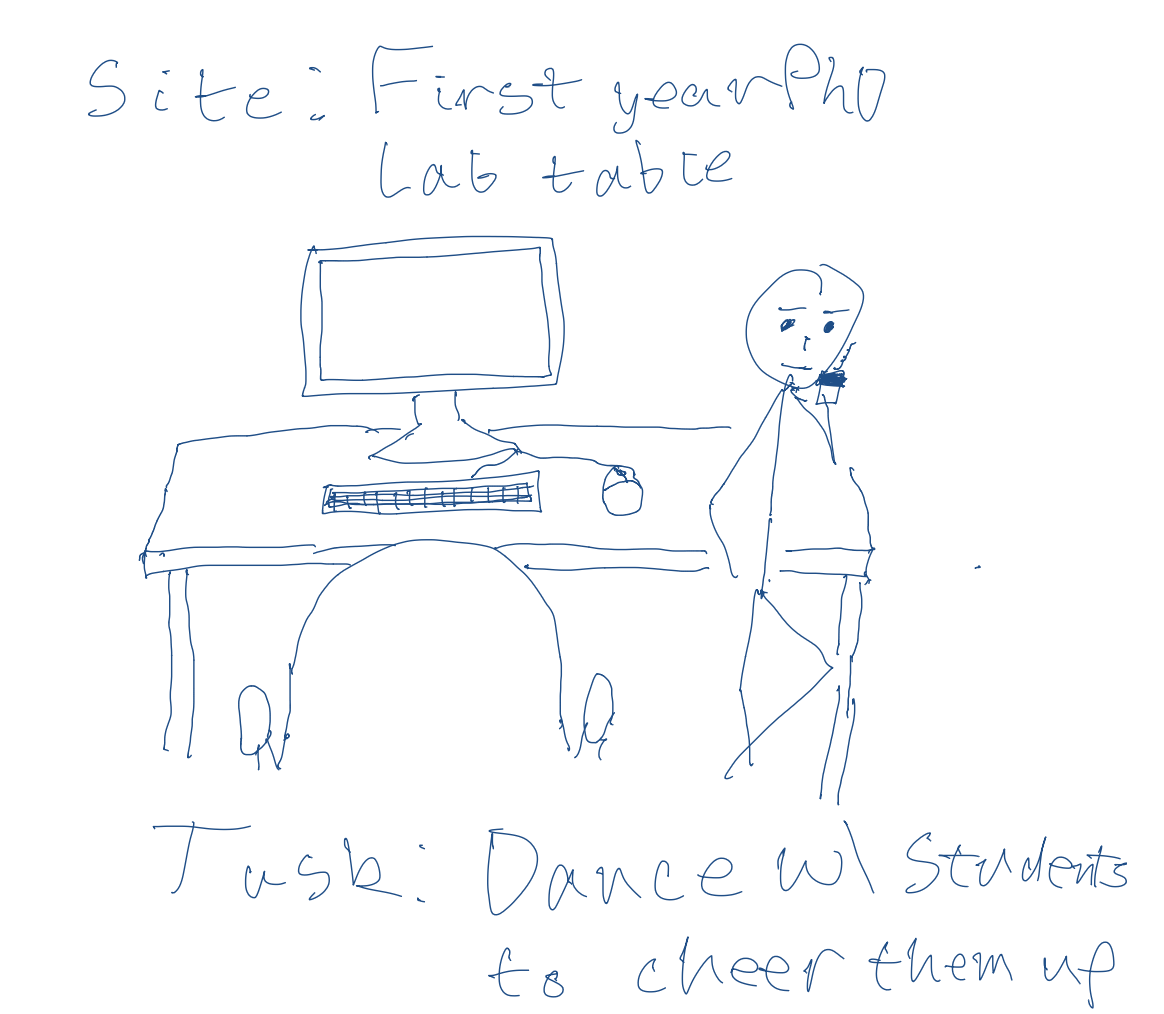 Site: First year PhD
Lab table
Task: Dance w\ Students
to cheer them up